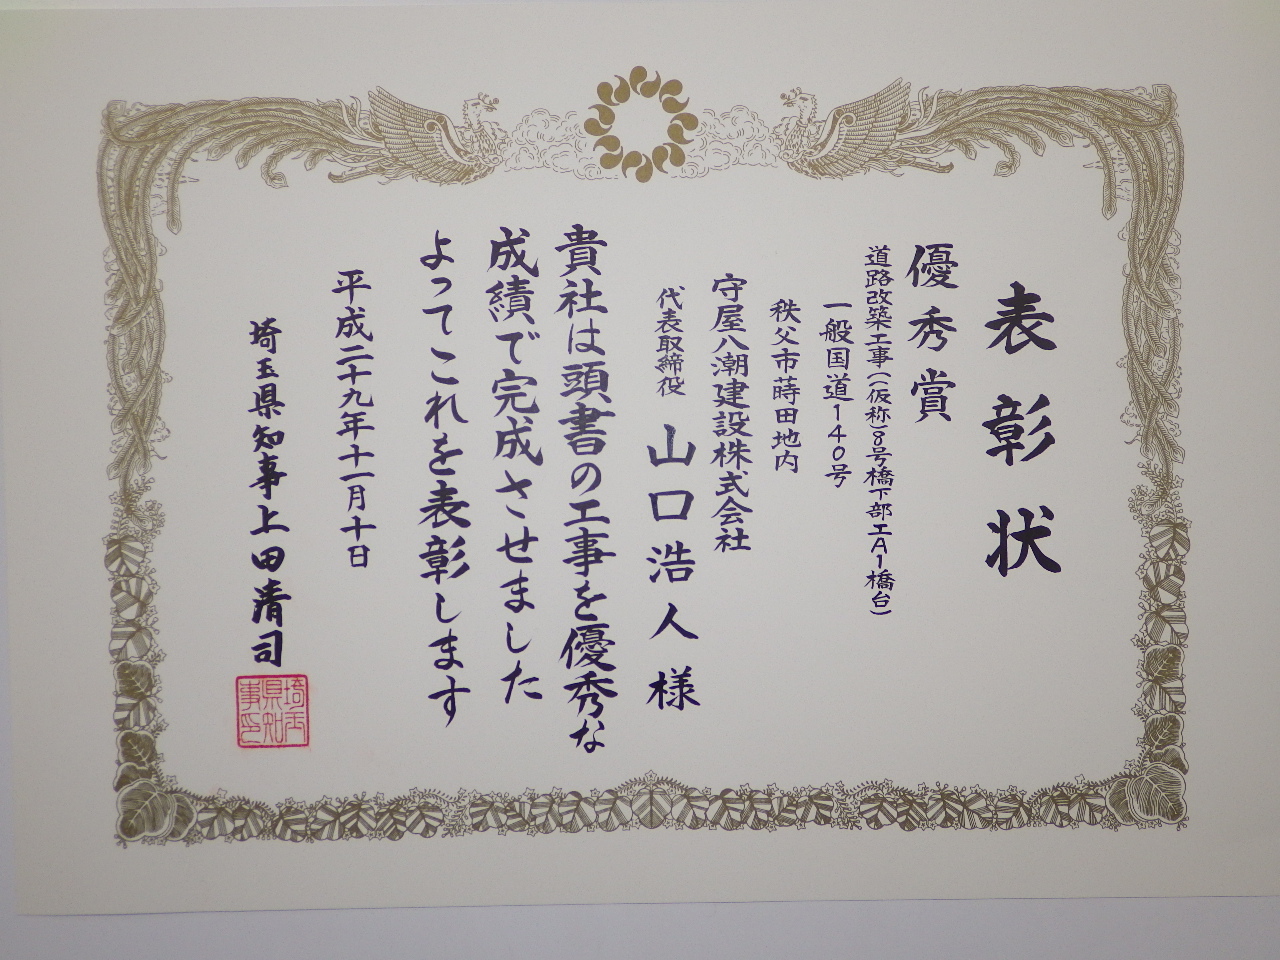 表彰状
優秀賞
道路改築工事((仮称)8号橋下部工A1橋台)
一般国道140号
秩父市蒔田地内
守屋八潮建設株式会社
代表取締役 山口浩人様
貴社は頭書の工事を優秀な
成績で完成させました
よってこれを表彰します
平成二十九年十一月十日
埼玉県知事上田清司
埼玉
県知
事印